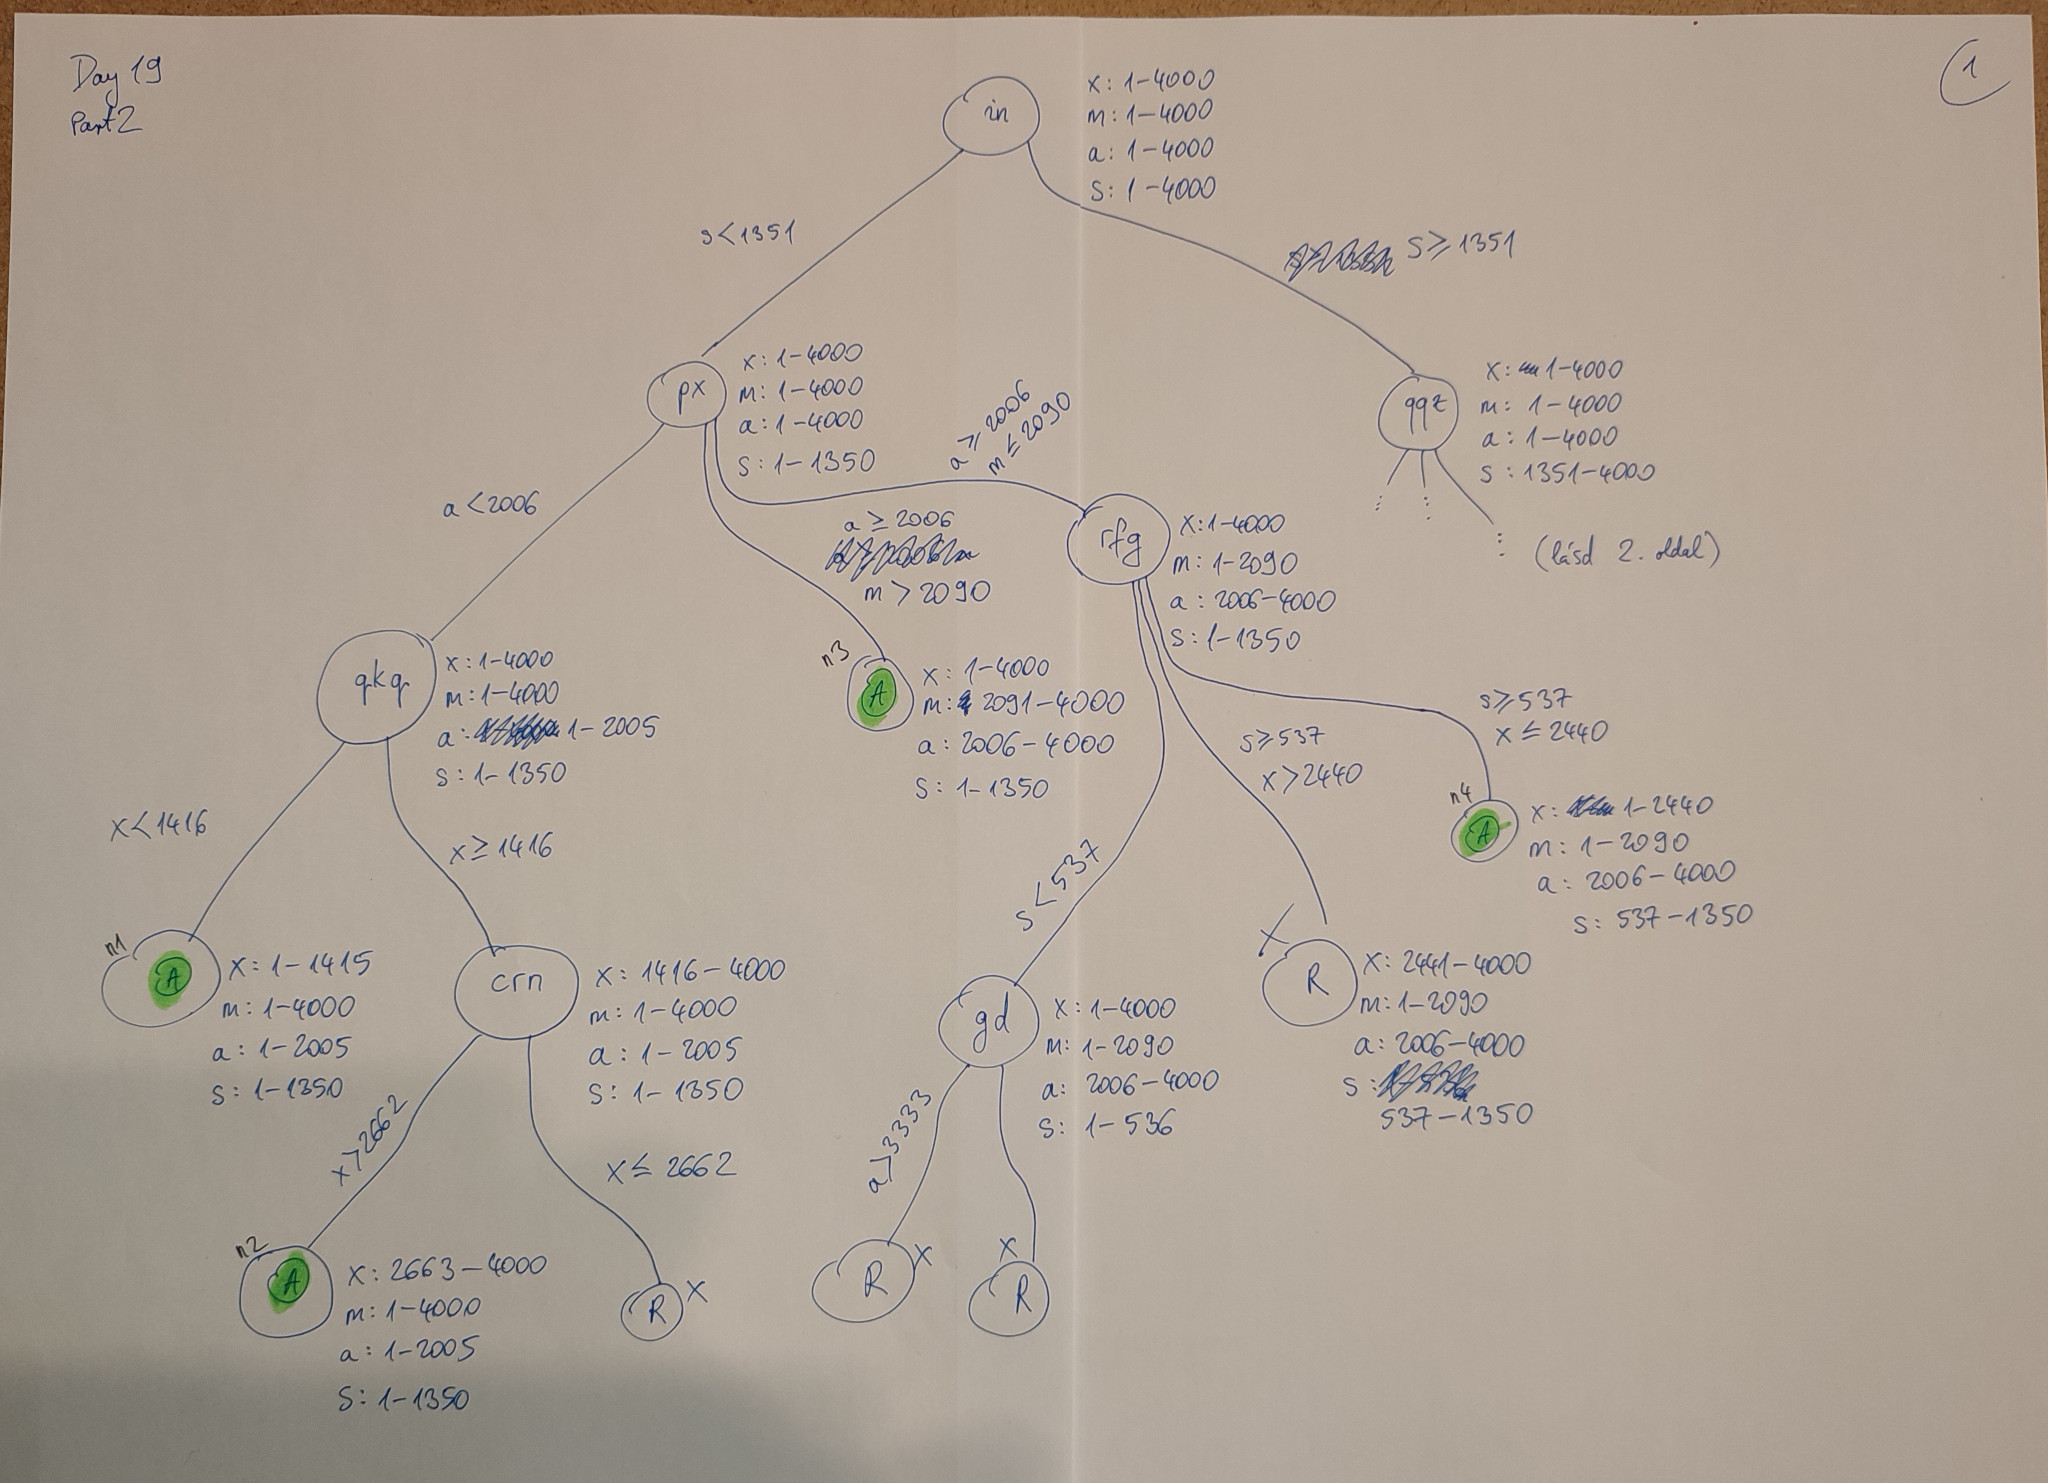 Day 19
Part 2
1
in
x: 1-4000
m: 1-4000
a: 1-4000
s: 1-4000
s<1351
s≥1351
px
x: 1-4000
m: 1-4000
a: 1-4000
s: 1-1350
qqz
x: 1-4000
m: 1-4000
a: 1-4000
s: 1351-4000
(lásd 2. oldal)
a<2006
a≥2006
m>2090
a≥2006
m≤2090
rfg
x: 1-4000
m: 1-2090
a: 2006-4000
s: 1-1350
qkq
x: 1-4000
m: 1-4000
a: 1-2005
s: 1-1350
n3
A
x: 1-4000
m: 2091-4000
a: 2006-4000
s: 1-1350
s<537
s≥537
x>2440
s≥537
x≤2440
n4
A
x: 1-2440
m: 1-2090
a: 2006-4000
s: 537-1350
x<1416
x≥1416
n1
A
x: 1-1415
m: 1-4000
a: 1-2005
s: 1-1350
crn
x: 1416-4000
m: 1-4000
a: 1-2005
s: 1-1350
gd
x: 1-4000
m: 1-2090
a: 2006-4000
s: 1-536
X
R
x: 2441-4000
m: 1-2090
a: 2006-4000
s:
537-1350
x>2662
x≤2662
a>3333
n2
A
x: 2663-4000
m: 1-4000
a: 1-2005
s: 1-1350
R X
R X
X
R